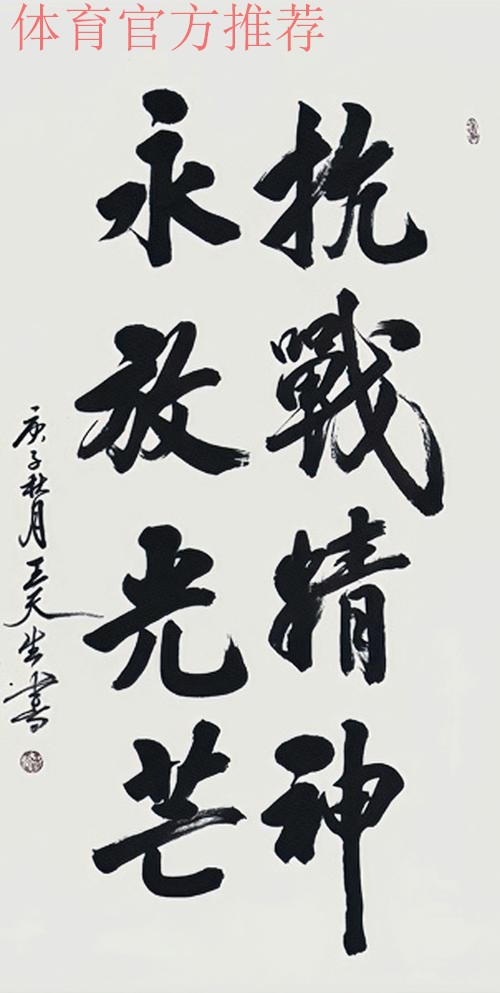 体育官方推荐
抗戰精神
永放光芒
庚子秋月王天生書